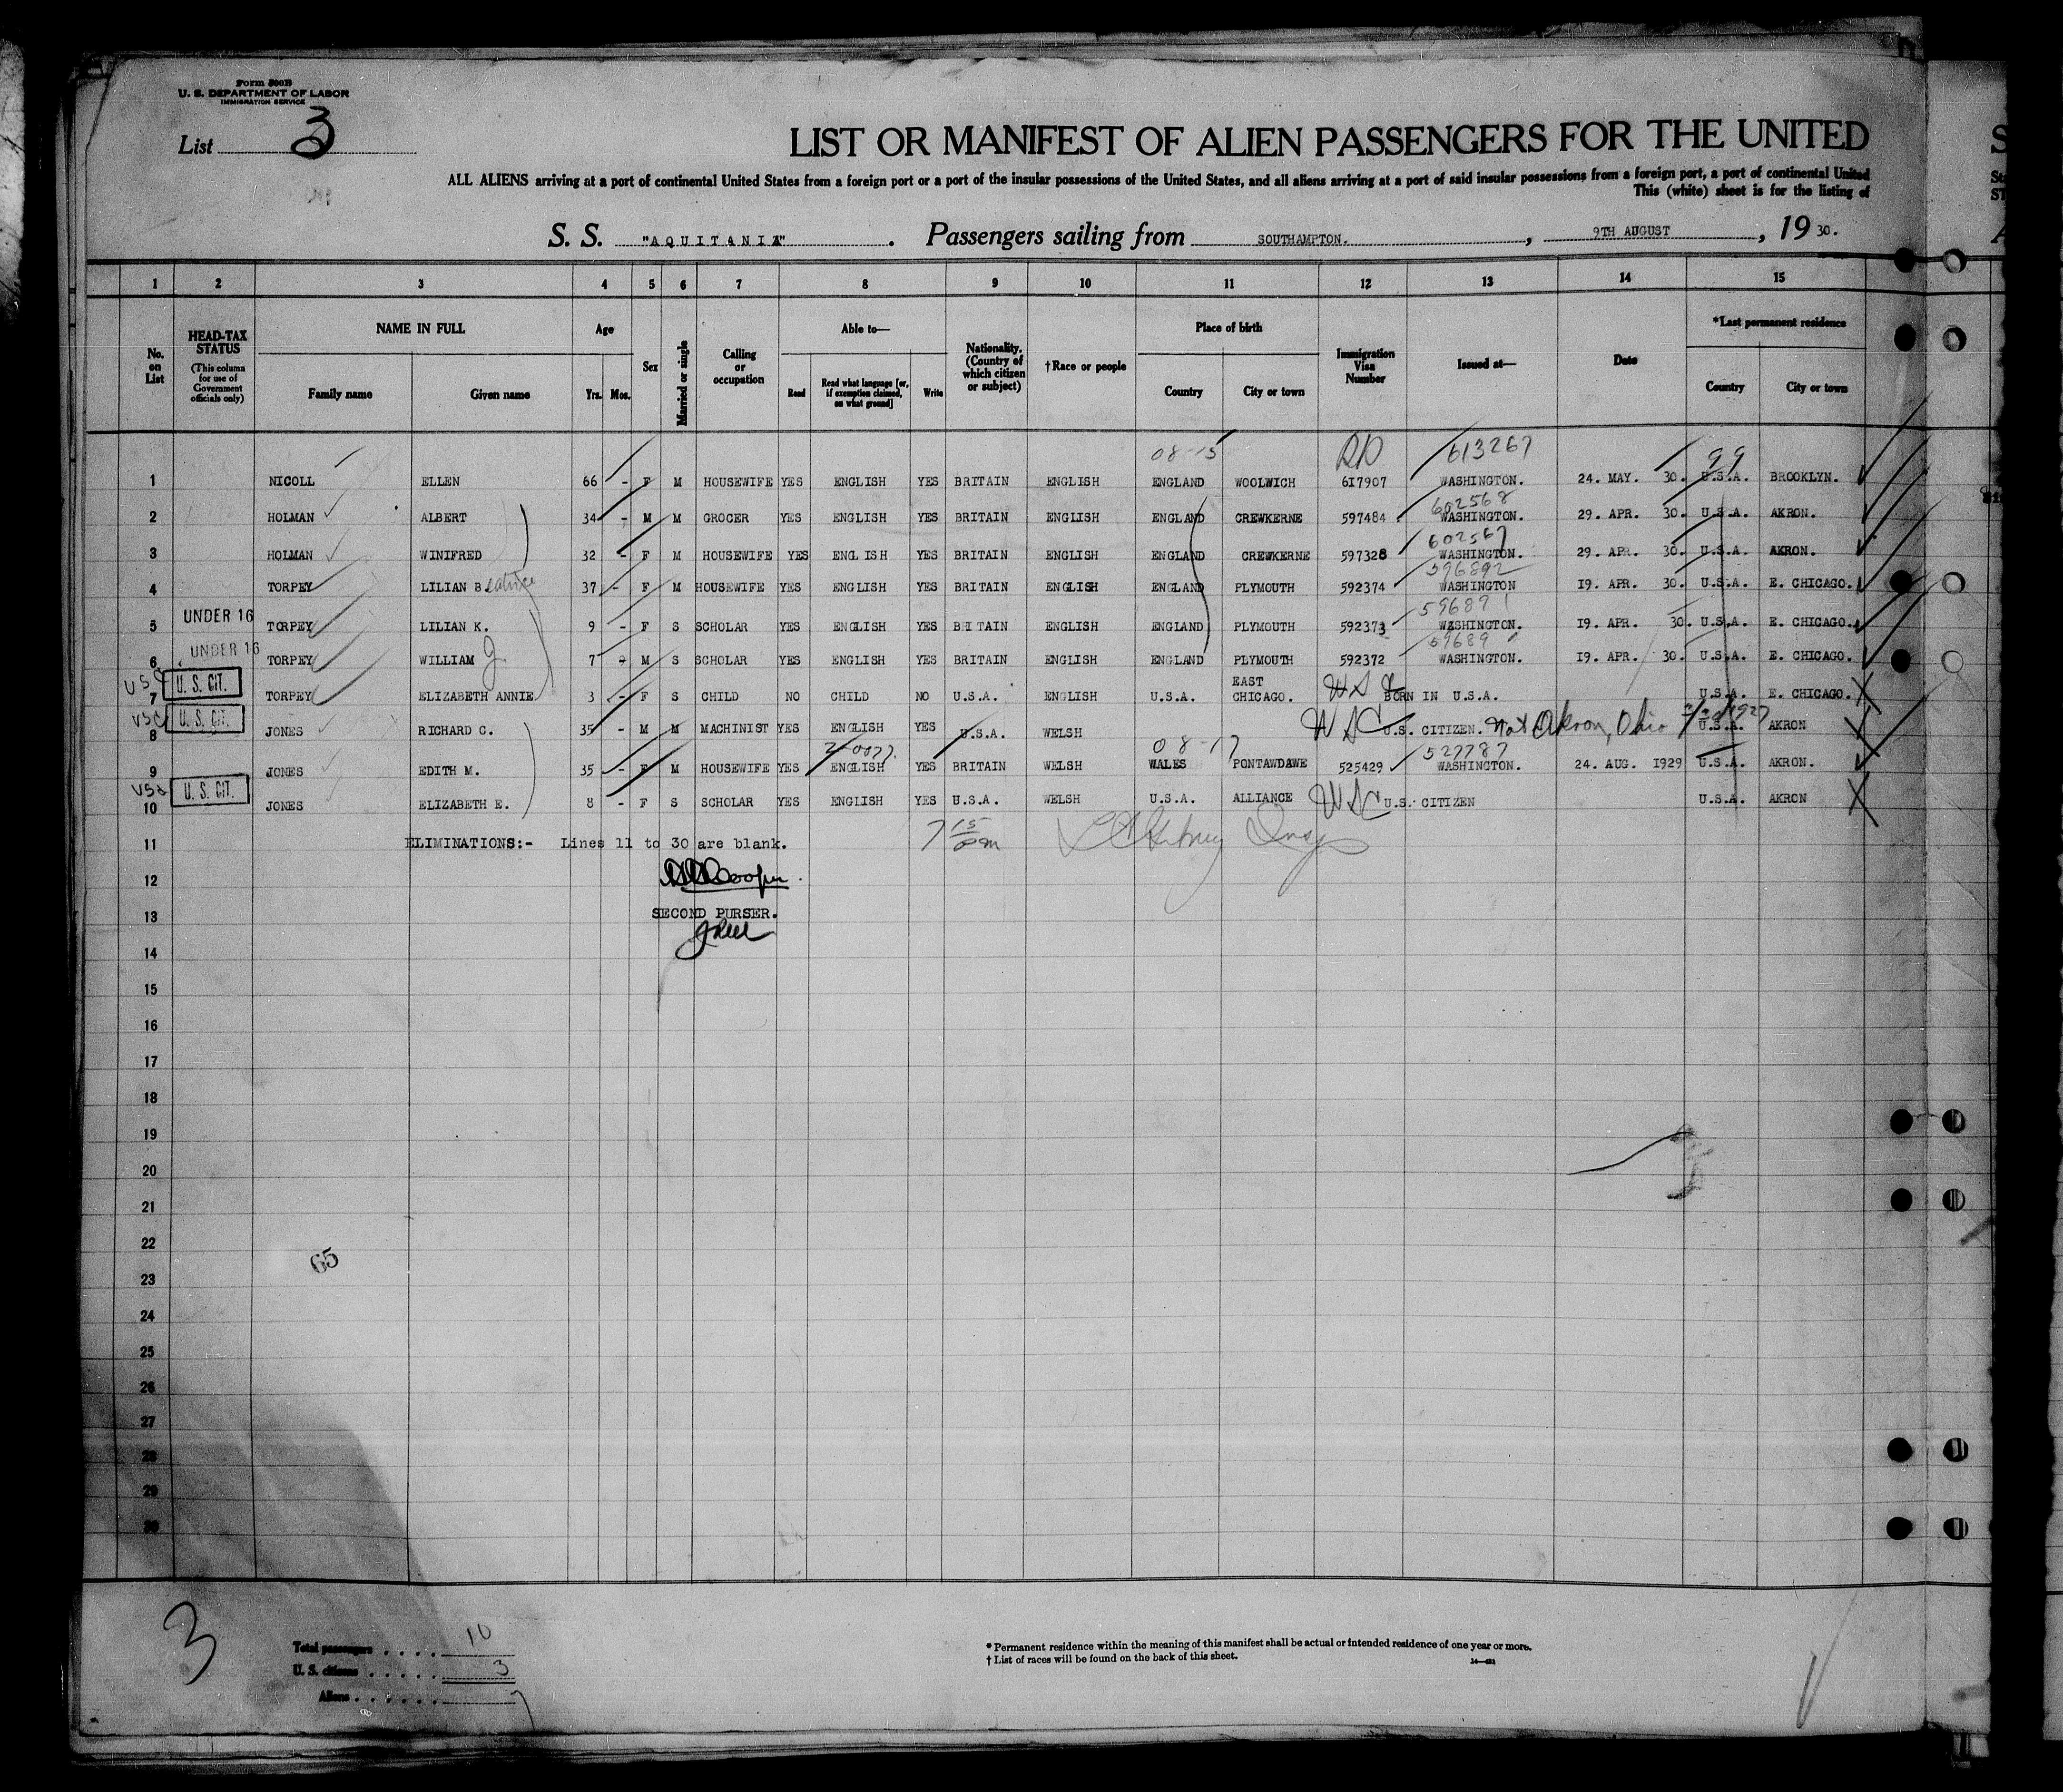 Form 500B
U. S. DEPARTMENT OF LABOR
IMMIGRATION SERVICE
List 3
LIST OR MANIFEST OF ALIEN PASSENGERS FOR THE UNITED
ALL ALIENS arriving at a port of continental United States from a foreign port or a port of the insular possessions of the United States, and all aliens arriving at a port of said insular possessions from a foreign port, a port of continental United
This (white) sheet is for the listing of
S. S. "AQUITANIA". Passengers sailing from SOUTHAMPTON., 9TH AUGUST, 19 30.
1 2 3 4 5 6 7 8 9 10 11 12 13 14 15
No. on List
HEAD-TAX STATUS
(This column for use of Government officials only)
NAME IN FULL
Family name Given name
Age
Yrs. Mos.
Sex
Married or single
Calling or occupation
Able to—
Read Read what language [or, if exemption claimed, on what ground] Write
Nationality. (Country of which citizen or subject)
†Race or people
Place of birth
Country City or town
Immigration Visa Number
Issued at—
Date
*Last permanent residence
Country City or town
08-15 613267 99
1 NICOLL ELLEN 66 - F M HOUSEWIFE YES ENGLISH YES BRITAIN ENGLISH ENGLAND WOOLWICH 617907 WASHINGTON. 24. MAY. 30. U.S.A. BROOKLYN.
602568
2 HOLMAN ALBERT 34 - M M GROCER YES ENGLISH YES BRITAIN ENGLISH ENGLAND CREWKERNE 597484 WASHINGTON. 29. APR. 30. U.S.A. AKRON.
602567
3 HOLMAN WINIFRED 32 - F M HOUSEWIFE YES ENGLISH YES BRITAIN ENGLISH ENGLAND CREWKERNE 597328 WASHINGTON. 29. APR. 30. U.S.A. AKRON.
596892
4 TORPEY LILIAN Beatrice 37 - F M HOUSEWIFE YES ENGLISH YES BRITAIN ENGLISH ENGLAND PLYMOUTH 592374 WASHINGTON 19. APR. 30. U.S.A. E. CHICAGO.
UNDER 16 596891
5 TORPEY LILIAN K. 9 - F S SCHOLAR YES ENGLISH YES BRITAIN ENGLISH ENGLAND PLYMOUTH 592373 WASHINGTON. 19. APR. 30. U.S.A. E. CHICAGO.
UNDER 16 59689
6 TORPEY WILLIAM J. 7 - M S SCHOLAR YES ENGLISH YES BRITAIN ENGLISH ENGLAND PLYMOUTH 592372 WASHINGTON. 19. APR. 30. U.S.A. E. CHICAGO.
USC U. S. CIT.
7 TORPEY ELIZABETH ANNIE 3 - F S CHILD NO CHILD NO U.S.A. ENGLISH U.S.A. EAST CHICAGO. BORN IN U.S.A. U.S.A. E. CHICAGO.
USC U. S. CIT.
8 JONES RICHARD C. 35 - M M MACHINIST YES ENGLISH YES U.S.A. WELSH USC U.S. CITIZEN. Nat Akron, Ohio 1927 U.S.A. AKRON
08-17 527787
9 JONES EDITH M. 35 - F M HOUSEWIFE YES ENGLISH YES BRITAIN WELSH WALES PONTAWDAWE 525429 WASHINGTON. 24. AUG. 1929 U.S.A. AKRON.
USC U. S. CIT.
10 JONES ELIZABETH E. 8 - F S SCHOLAR YES ENGLISH YES U.S.A. WELSH U.S.A. ALLIANCE USC U.S. CITIZEN U.S.A. AKRON
11 ELIMINATIONS:- Lines 11 to 30 are blank. 7 15 pm
12 Cooper.
13 SECOND PURSER.
14
15
16
17
18
19
20
21
22
65
23
24
25
26
27
28
29
30
3
Total passengers . . . . 10
U. S. citizens . . . . . 3
Aliens . . . . . . 7
* Permanent residence within the meaning of this manifest shall be actual or intended residence of one year or more.
† List of races will be found on the back of this sheet.